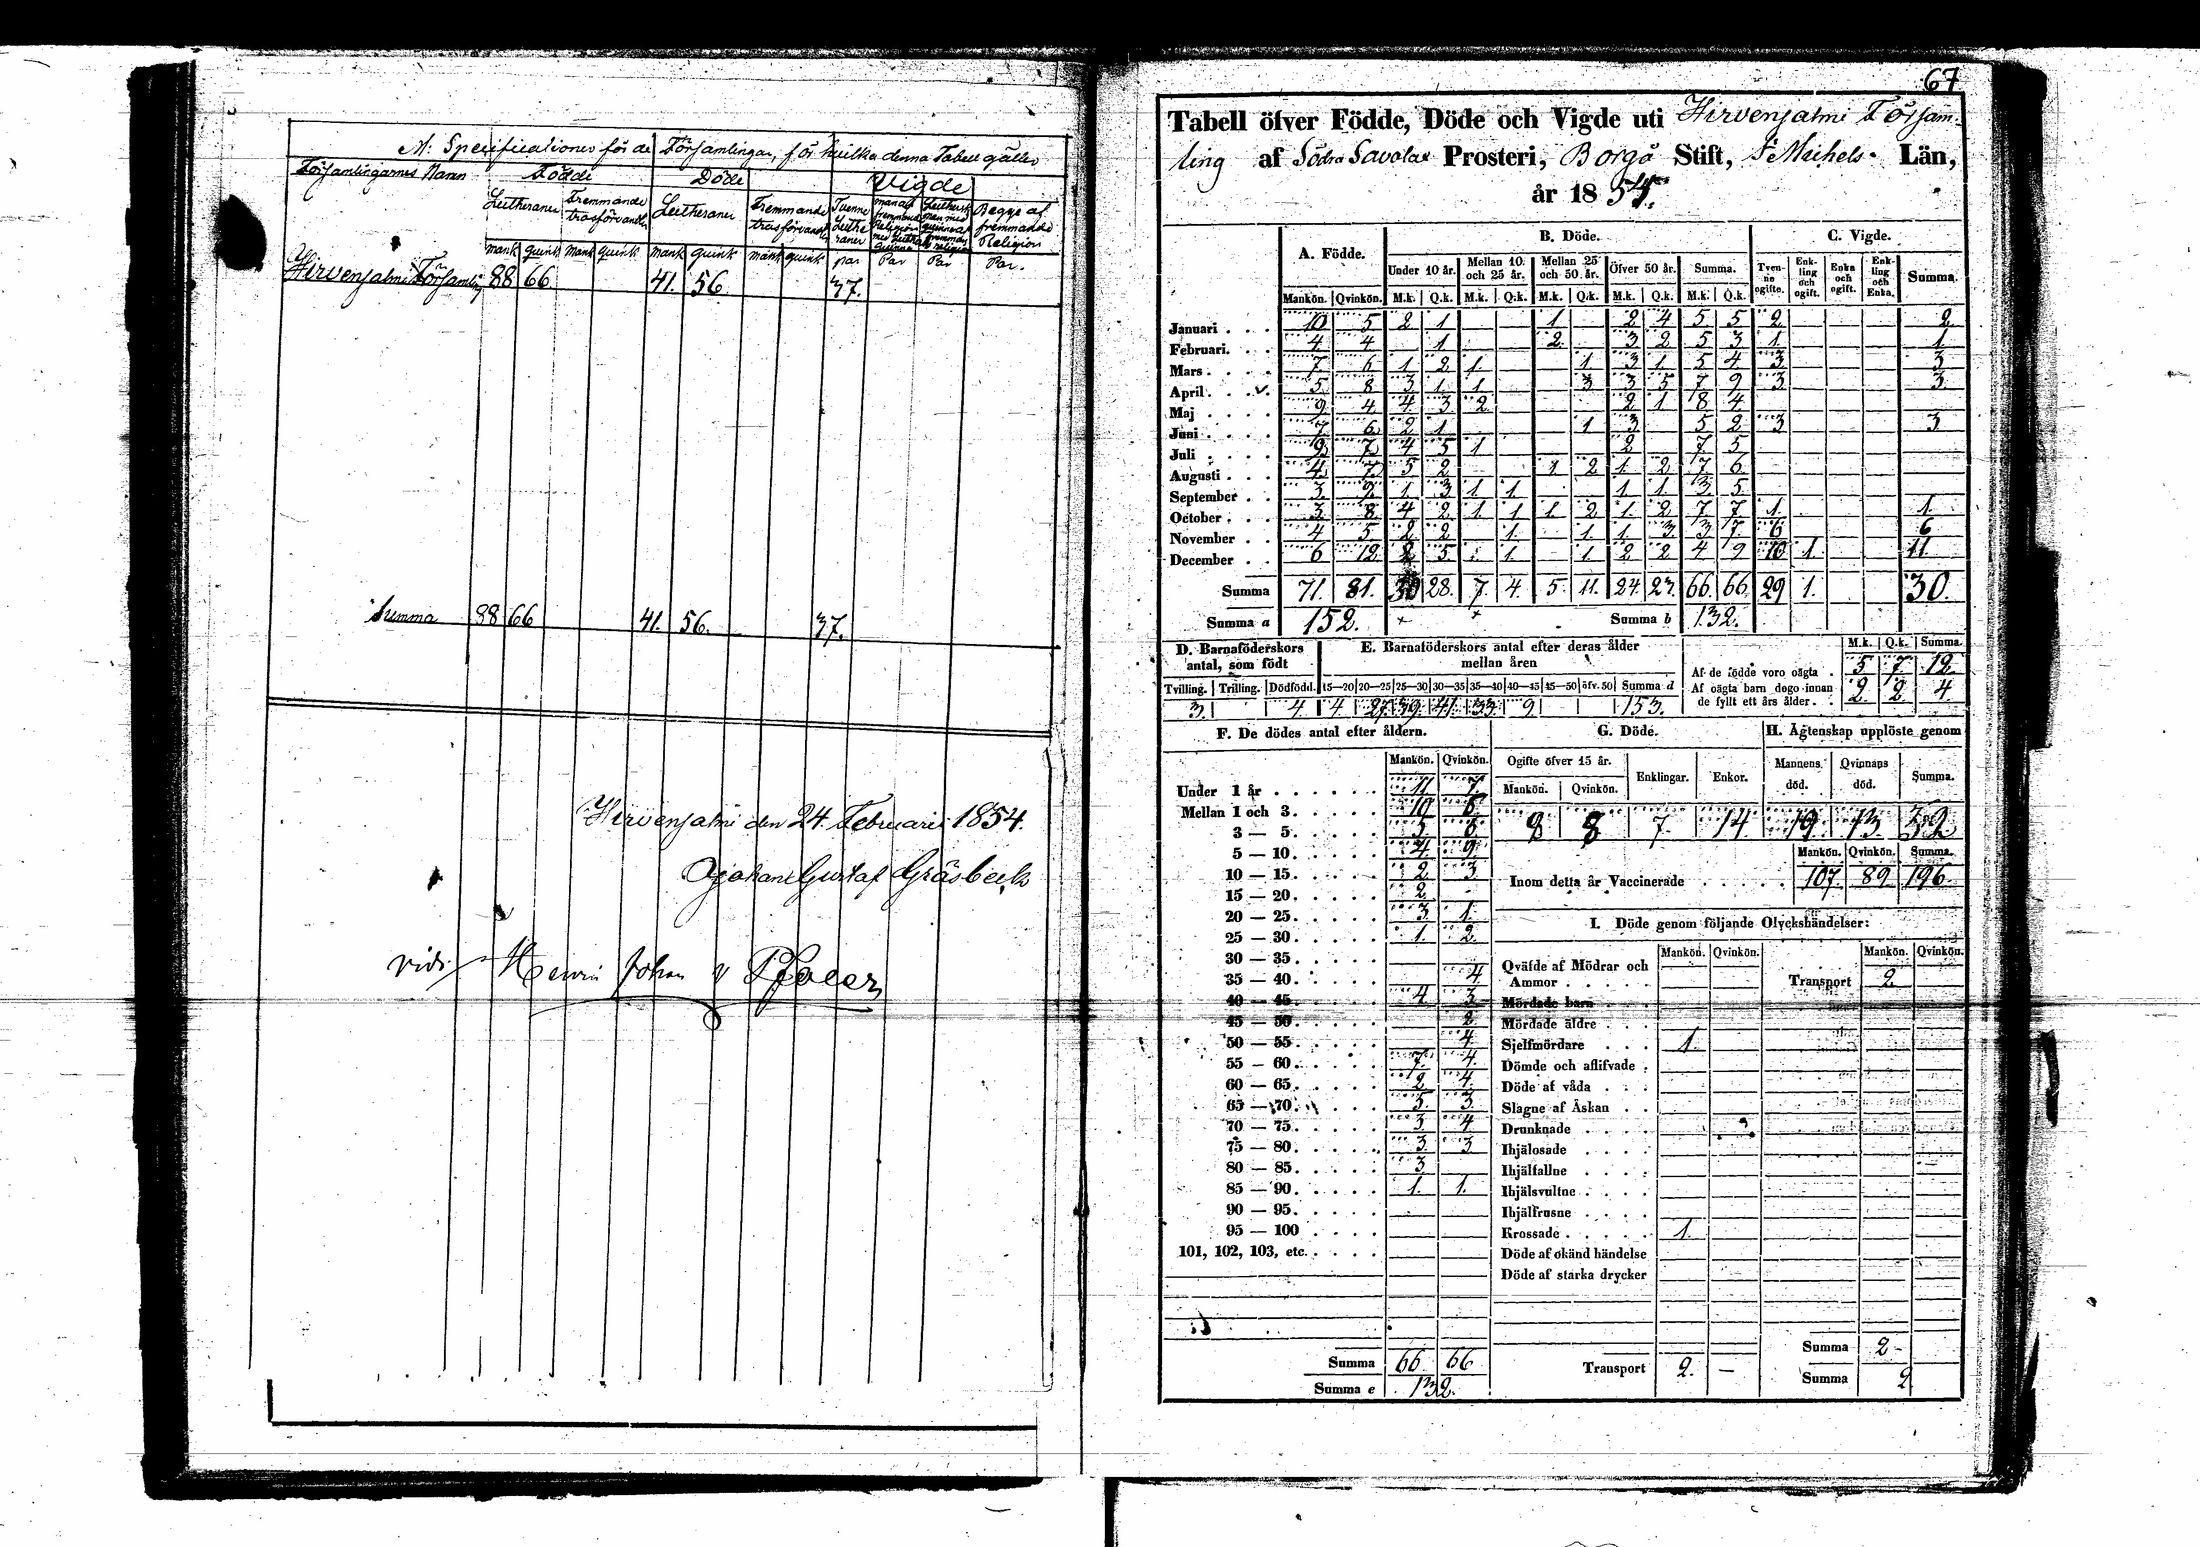 M: Specificationer för de Församlingar, för hvilka denna Tabell gäller
Församlingarnes Namn Födde Döde Vigde
Lutheraner Fremmande trosförvandter Lutheraner Fremmande trosförvandter Tvenne Lutheraner Begge af fremmande Religion
mank qvink mank qvink mank qvink mank qvink par Par Par Par.
Hirvensalmi Församling 88 66. 41. 56. 37.
Summa 88 66 41. 56. 37.
Hirvensalmi den 24. Februarii 1854.
Johan Gustaf Gråsbeck
vidi Henric Johan
67
Tabell öfver Födde, Döde och Vigde uti Hirvensalmi Försam-
ling af Södra Savolax Prosteri, Borgå Stift, St Michels Län,
år 1854.
A. Födde. B. Döde. C. Vigde.
Under 10 år. Mellan 10 och 25 år. Mellan 25 och 50 år. Öfver 50 år. Summa. Tvenne ogifte. Enkling och ogift. Enka och ogift. Enkling och Enka. Summa.
Mankön. Qvinkön. M.k. Q.k. M.k. Q.k. M.k. Q.k. M.k. Q.k. M.k. Q.k.
Januari . . . 10. 5 2 1 1 2 4 5 5 2 2
Februari. . . 4. 4 1 2 3 2 5 3 1. 1
Mars . . . . 7 6 1 2 1 1 3 1 5 4 3 3
April . . . 5. 8 3 1 1 3 3 5 7 9 3 3.
Maj . . . . 9 4 4 3 2 2 1 8 4
Juni . . . . 7 6 2 1 1 3 5 2 3 3
Juli . . . . 9 7 4 5 1 2 7 5
Augusti . . . 4. 7 5 2 1 2 1. 2 7 6
September . . 3. 9. 1. 3 1 1 1 1. 3 5
October . . . 3 8 4 2 1 1 1 2 1. 2 7 7 1. 1
November . . 4 5 2 2 1 1 1. 3. 3 7. 6 6
December . . 6 12 2 5 1 1 2 2 4 9 10 1. 11
Summa 71. 81. 30 28. 7. 4. 5. 11. 24. 23. 66. 66. 29 1. 30.
Summa a 152. Summa b 132.
D. Barnaföderskors antal, som födt E. Barnaföderskors antal efter deras ålder mellan åren
M.k. Q.k. Summa.
Af de födde voro oägta . 5 7 12
Af oägta barn dogo innan de fyllt ett års ålder . . 2 2 4
Tvilling. Trilling. Dödfödd. 15—20 20—25 25—30 30—35 35—40 40—45 45—50 öfv. 50 Summa d
3. 4 4 27 39. 41. 33 9 153.
F. De dödes antal efter åldern. G. Döde. H. Ägtenskap upplöste genom
Mankön. Qvinkön. Ogifte öfver 15 år. Enklingar. Enkor. Mannens död. Qvinnans död. Summa.
Mankön. Qvinkön.
9 8 7. 14 19. 13. 32
Under 1 år . . . . . . 11 7.
Mellan 1 och 3 . . . . . 10 6
3 — 5. . . . . 5 6.
5 — 10. . . . . 4 9
10 — 15. . . . . 2 3
15 — 20. . . . . 2
20 — 25. . . . . 3 1.
25 — 30. . . . . 1. 2.
30 — 35. . . . .
35 — 40. . . . . 4
40 — 45. . . . . 4 3
45 — 50. . . . . 2.
50 — 55. . . . . 4.
55 — 60. . . . . 7. 4.
60 — 65. . . . . 2 4.
65 — 70. . . . . 5. 3.
70 — 75. . . . . 3 4
75 — 80. . . . . 3. 3
80 — 85. . . . . 3.
85 — 90. . . . . 1. 1.
90 — 95. . . . .
95 — 100 . . . .
101, 102, 103, etc. . . . .
Summa 66 66
Summa e 132.
Mankön. Qvinkön. Summa.
Inom detta år Vaccinerade . . . . . 107. 89 196.
I. Döde genom följande Olyckshändelser:
Mankön. Qvinkön. Mankön. Qvinkön.
Qväfde af Mödrar och Ammor . . . . . Transport 2.
Mördade barn . . .
Mördade äldre . . .
Sjelfmördare . . . 1.
Dömde och aflifvade .
Döde af våda . . .
Slagne af Åskan . .
Drunknade . . . .
Ihjälosade . . . .
Ihjälfallne . . . .
Ihjälsvultne . . . .
Ihjälfrusne . . . .
Krossade . . . . . 1.
Döde af okänd händelse
Döde af starka drycker
Transport 2. —
Summa 2
Summa 2